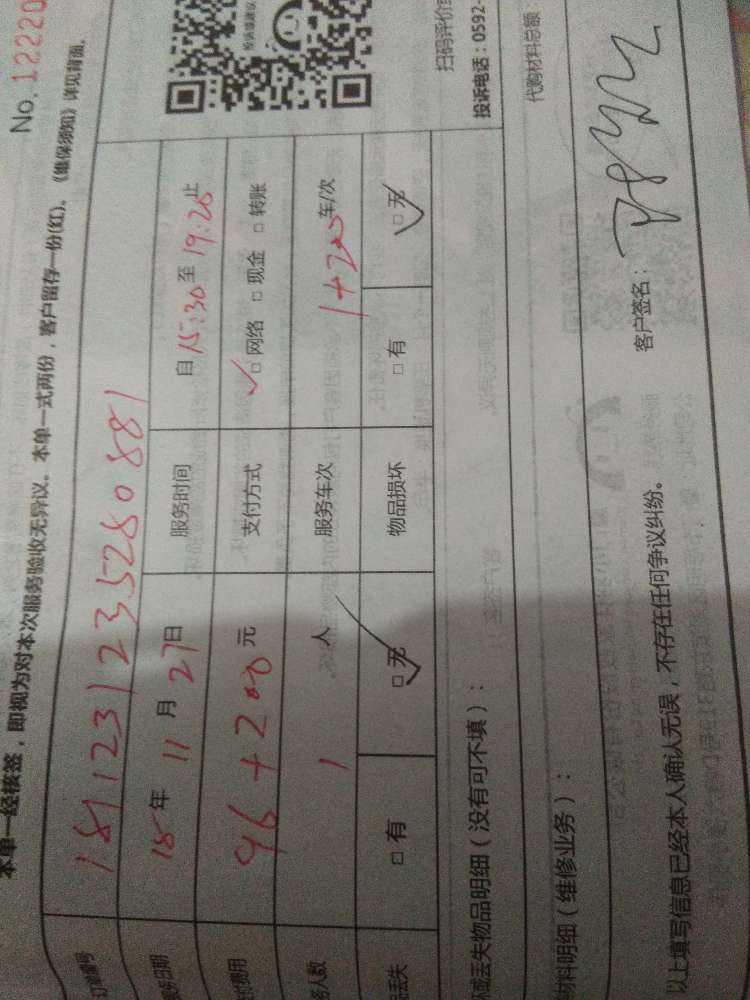 No. 12220
本单一经核签，即视为对本次服务验收无异议。本单一式两份，客户留存一份(红)。《维保须知》详见背面。
订单编号 181123123528088 1
服务日期 18年 11月 27日 服务时间 自 15:30 至 19:20 止
费用 96+200 元 支付方式 □ 网络 □ 现金 □ 转账
务人数 1 人 服务车次 1+200 车/次
丢失 □ 有 □ 无 物品损坏 □ 有 □ 无
坏或丢失物品明细（没有可不填）：
扫码评价
投诉电话：0592-
材料明细（维修业务）：
代购材料总额：
以上填写信息已经本人确认无误，不存在任何争议纠纷。
客户签名：